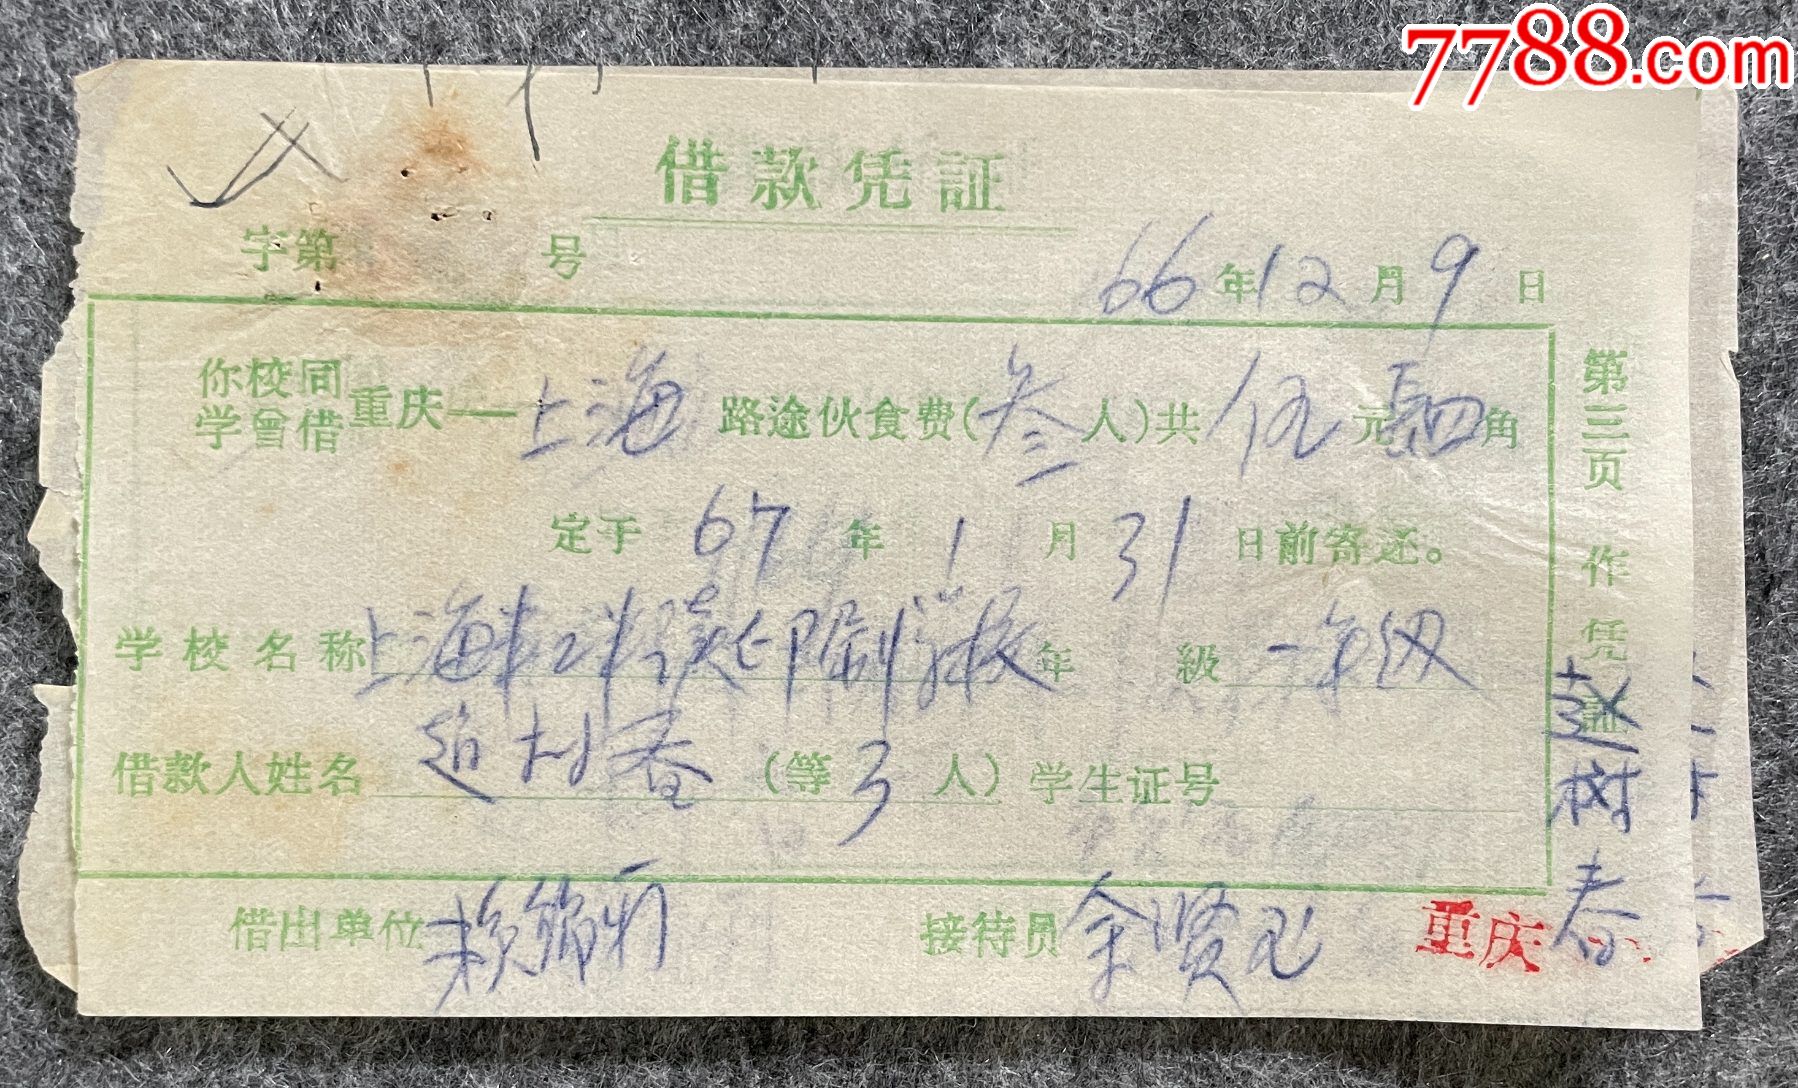 7788.com
借款凭証
字第 号
66年12月9日
你校同学曾借重庆——上海路途伙食费(叁人)共伍元肆角
定于67年1月31日前寄还。
学校名称上海 印刷学校年級一年级
借款人姓名赵树春(等3人)学生证号
借出单位
接待员余贤
重庆
第三页 作凭証
赵树春